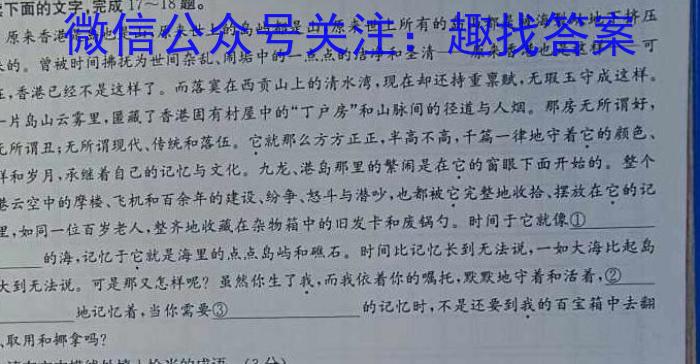 下面的文字,完成17～18题。
微信公众号关注：趣找答案
来的。曾被时间拂抚为世间杂乱、闹垢中的一点点的洁净和圣清
在,香港已经不是这样了。而落寞在西贡山上的清水湾,现在却还持重禀赋,无瑕玉守成这样。
一片岛山云雾里,匿藏了香港固有村屋中的“丁户房”和山脉间的径道与人烟。那房无所谓好,
无所谓丑;无所谓现代、传统和落伍。它就那么方方正正,半高不高,千篇一律地守着它的颜色、
样和岁月,承继着自己的记忆与文化。九龙、港岛那里的繁闹是在它的窗眼下面开始的。整个
港云空中的摩楼、飞机和百余年的建设、纷争、怒斗与潜吵,也都被它完整地收拾、摆放在它的记
里,如同一位百岁老人,整齐地收藏在杂物箱中的旧发卡和废锅勺。时间于它就像①
的海,记忆于它就是海里的点点岛屿和礁石。时间比记忆长到无法说,一如大海比起岛
大到无法说。可是那又怎样呢？虽然你生了我,而我依着你的嘱托,默默地守着和活着,②
地记忆着,当你需要③的记忆时,不是还要到我的百宝箱中去翻
、取用和挪拿吗？